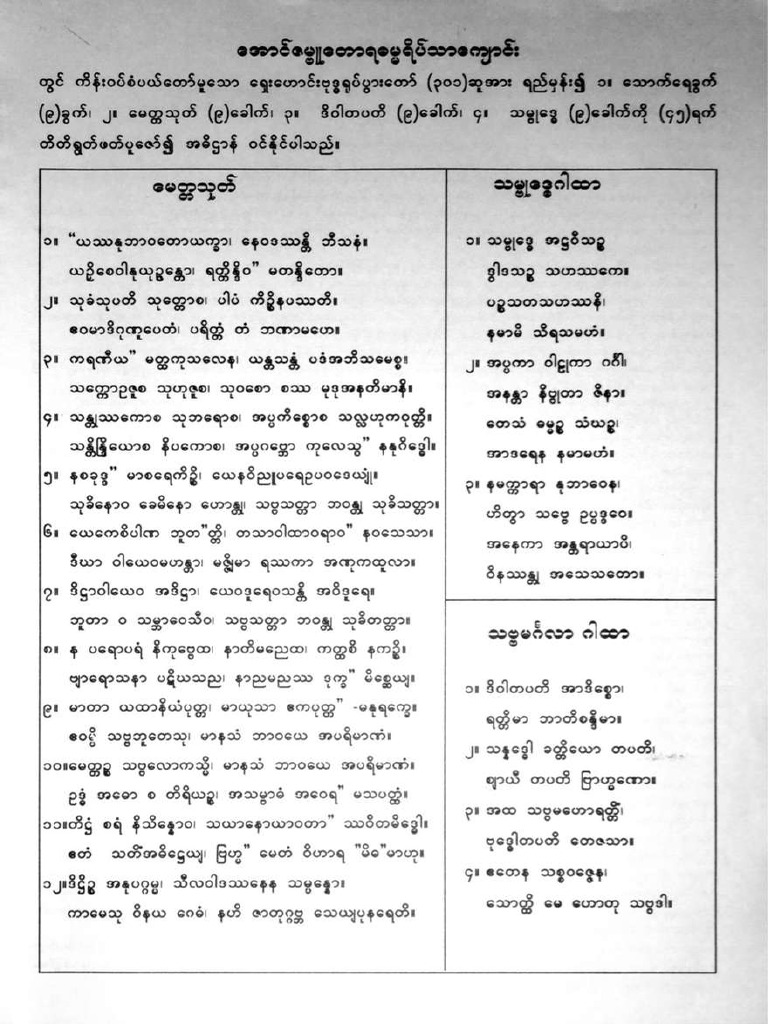 အောင်ဇမ္ဗူတောရဓမ္မရိပ်သာကျောင်း
တွင် ကိန်းဝပ်စံပယ်တော်မူသော ရှေးဟောင်းဗုဒ္ဓရုပ်ပွားတော် (၃၀၁)ဆူအား ရည်မှန်း၍ ၁။ သောက်ရေခွက်
(၉)ခွက်၊ ၂။ မေတ္တသုတ် (၉)ခေါက်၊ ၃။ ဒိဝါတပတိ (၉)ခေါက်၊ ၄။ သမ္ဗုဒ္ဓေ (၉)ခေါက်ကို (၄၅)ရက်
တိတိရွတ်ဖတ်ပူဇော်၍ အဓိဋ္ဌာန် ဝင်နိုင်ပါသည်။
မေတ္တသုတ်
၁။ “ယဿနုဘာဝတောယက္ခာ၊ နေဝဒဿန္တိ ဘီသနံ။
ယဉှိစေဝါနုယုဉ္ဇန္တော၊ ရတ္တိန္ဒိဝ” မတန္ဒိတော။
၂။ သုခံသုပတိ သုတ္တောစ၊ ပါပံ ကိဉ္စိနပဿတိ။
ဧဝမာဒိဂုဏူပေတံ၊ ပရိတ္တံ တံ ဘဏာမဟေ။
၃။ ကရဏီယ” မတ္ထကုသလေန၊ ယန္တသန္တံ ပဒံအဘိသမေစ္စ။
သက္ကောဥဇူစ သုဟုဇူစ၊ သုဝစော စဿ မုဒုအနတိမာနိ။
၄။ သန္တုဿကောစ သုဘရောစ၊ အပ္ပကိစ္စောစ သလ္လဟုကဝုတ္တိ။
သန္တိန္ဒြိယောစ နိပကောစ၊ အပ္ပဂဗ္ဘော ကုလေသွ” နနုဂိဒ္ဓေါ။
၅။ နစခုဒ္ဒ” မာစရေကိဉ္စိ၊ ယေနဝိညူပရေဥပဝဒေယျုံ။
သုခိနောဝ ခေမိနော ဟောန္တု၊ သဗ္ဗသတ္တာ ဘဝန္တု သုခိသတ္တာ။
၆။ ယေကေစိပါဏ ဘူတ”တ္ထိ၊ တသာဝါထာဝရာဝ” နဝသေသာ။
ဒီဃာ ဝါယေဝမဟန္တာ၊ မဇ္ဈိမာ ရဿကာ အဏုကထူလာ။
၇။ ဒိဋ္ဌာဝါယေဝ အဒိဋ္ဌာ၊ ယေဝဒူရေဝသန္တိ အဝိဒူရေ။
ဘူတာ ဝ သမ္ဘာဝေသီဝ၊ သဗ္ဗသတ္တာ ဘဝန္တု သုခိတတ္တာ။
၈။ န ပရောပရံ နိကုဗ္ဗေထ၊ နာတိမညေထ၊ ကတ္ထစိ နကဉ္စိ။
ဗျာရောသနာ ပဋိဃသည၊ နာညမညဿ ဒုက္ခ” မိစ္ဆေယျ။
၉။ မာတာ ယထာနိယံပုတ္တ၊ မာယုသာ ဧကပုတ္တ” -မနုရက္ခေ။
ဧဝမ္ပိ သဗ္ဗဘူတေသု၊ မာနသံ ဘာဝယေ အပရိမာဏံ။
၁၀။မေတ္တဉ္စ သဗ္ဗလောကသ္မိံ၊ မာနသံ ဘာဝယေ အပရိမာဏံ။
ဥဒ္ဓံ အဓော စ တိရိယဉ္စ၊ အသမ္ဗာဓံ အဝေရ” မသပတ္တံ။
၁၁။တိဋ္ဌံ စရံ နိသိန္နောဝ၊ သယာနောယာဝတာ” ဿဝိတမိဒ္ဓေါ။
ဧတံ သတိံအဓိဋ္ဌေယျ၊ ဗြဟ္မ” မေတံ ဝိဟာရ ”မိဓ”မာဟု။
၁၂။ဒိဋ္ဌိဉ္စ အနုပဂ္ဂမ္မ၊ သီလဝါဒဿနေန သမ္ပန္နော။
ကာမေသု ဝိနယ ဂေဓံ၊ နဟိ ဇာတုဂ္ဂဗ္ဘ သေယျပုနရေတိ။
သမ္ဗုဒ္ဓေဂါထာ
၁။ သမ္ဗုဒ္ဓေ အဋ္ဌဝီသဉ္စ
ဒွါဒသဉ္စ သဟဿကေ။
ပဉ္စသတသဟဿနိ၊
နမာမိ သိရသမဟံ။
၂။ အပ္ပကာ ဝါဠုကာ ဂင်္ဂါ၊
အနန္တာ နိဗ္ဗုတာ ဇိနာ။
တေသံ ဓမ္မဉ္စ သံဃဉ္စ၊
အာဒရေန နမာမဟံ။
၃။ နမက္ကာရာ နုဘာဝေန၊
ဟိတွာ သဗ္ဗေ ဥပဒ္ဒဝေ။
အနေကာ အန္တရာယာပိ၊
ဝိနဿန္တု အသေသတော။
သဗ္ဗမင်္ဂလာ ဂါထာ
၁။ ဒိဝါတပတိ အာဒိစ္စော၊
ရတ္တိမာ ဘာတိစန္ဒိမာ။
၂။ သန္နဒ္ဓေါ ခတ္တိယော တပတိ၊
ဈာယီ တပတိ ဗြာဟ္မဏော။
၃။ အထ သဗ္ဗမဟောရတ္တိံ၊
ဗုဒ္ဓေါတပတိ တေဇသာ။
၄။ ဧတေန သစ္စဝဇ္ဇေန၊
သောတ္ထိ မေ ဟောတု သဗ္ဗဒါ။